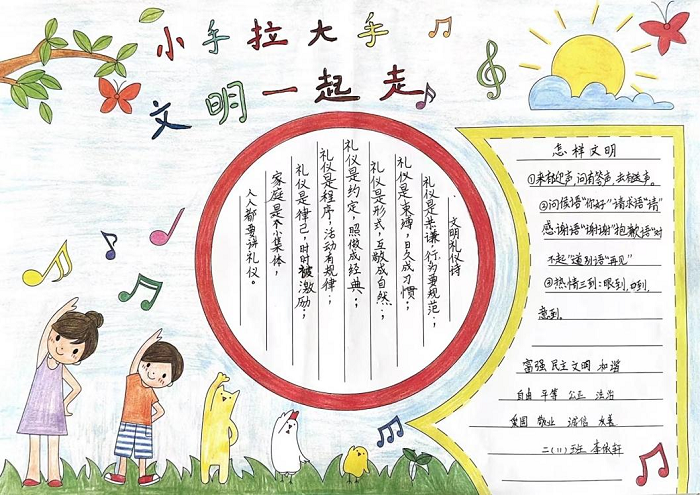 小手拉大手
文明一起走
文明礼仪诗
礼仪是恭谦,行为要规范;
礼仪是束缚,日久成习惯;
礼仪是形式,互敬成自然;
礼仪是约定,照做成经典;
礼仪是程序,活动有规律;
礼仪是律己,时时被激励;
家庭是个小集体,
人人都要讲礼仪。
怎样文明
①来有迎声,问有答声,去有送声。
②问候语“你好”请求语“请”
感谢语“谢谢”抱歉语“对
不起”道别语“再见”
③热情三到:眼到,口到,
意到。
富强 民主 文明 和谐
自由 平等 公正 法治
爱国 敬业 诚信 友善
二(11)班 李依轩